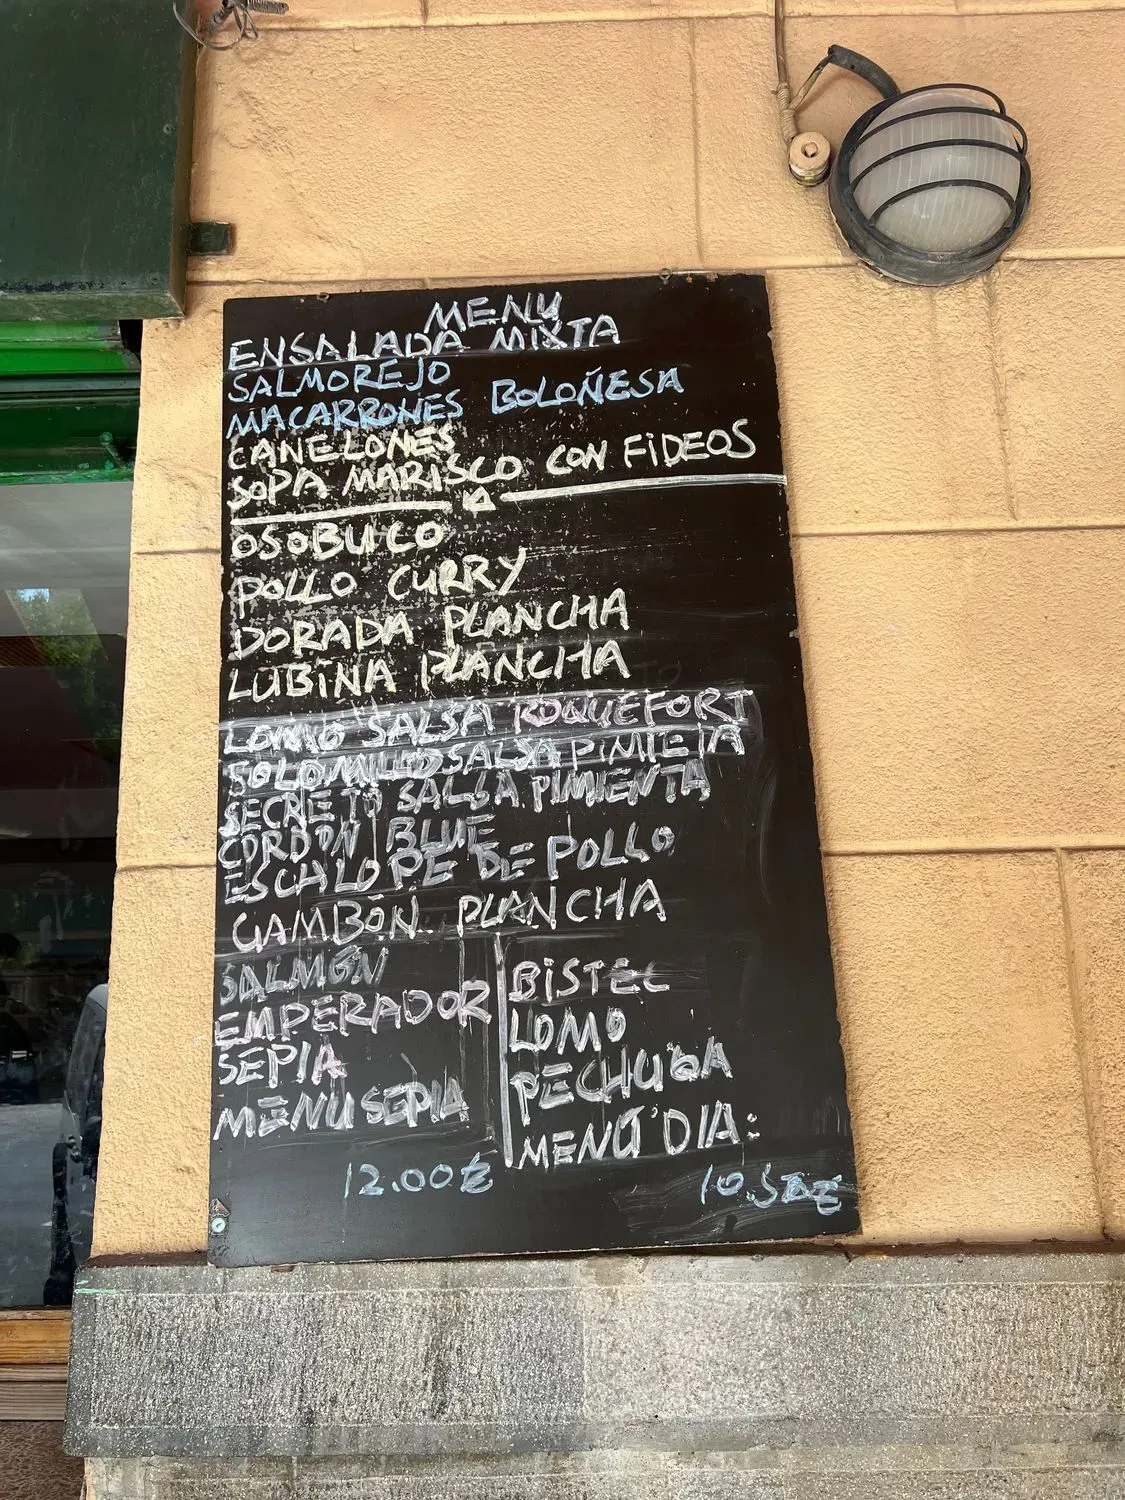 MENU
ENSALADA MIXTA
SALMOREJO
MACARRONES BOLOÑESA
CANELONES
SOPA MARISCO CON FIDEOS
OSOBUCO
POLLO CURRY
DORADA PLANCHA
LUBINA PLANCHA
LOMO SALSA ROQUEFORT
SOLOMILLO SALSA
SECRETO SALSA PIMIENTA
CORDON BLUE
ESCALOPE DE POLLO
GAMBÓN PLANCHA
SALMÓN
EMPERADOR
SEPIA
MENU SEPIA
12.00€
BISTEC
LOMO
PECHUGA
MENÚ DIA: